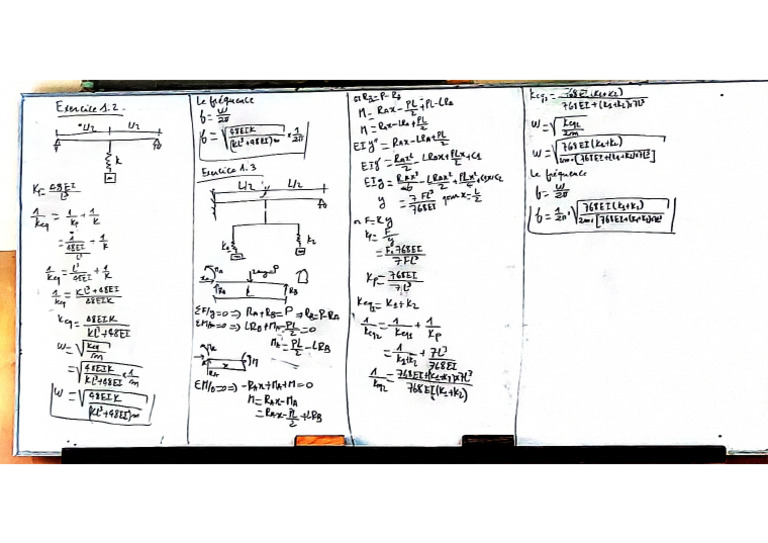 Exercice 1.2.
L/2 L/2
k
K₁ = 48EI/L³
1/Keq = 1/K₁ + 1/K
= 1/(48EI/L³) + 1/K
1/Keq = L³/48EI + 1/K
1/Keq = (KL³+48EI)/48EIK
Keq = 48EIK/(KL³+48EI)
W = √(Keq/m)
= √(48EIK/(KL³+48EI) × 1/m)
W = √(48EIK/(KL³+48EI)m)
Le fréquence
f = W/2π
f = √(48EIK/(KL³+48EI)m) × 1/2π
Exercice 1.3
L/2 L/2
K₁ K₂
MA P
RA RB
ΣF/y=0 => RA+RB=P => RB=P-RA
ΣM/A=0 => LRB+MA-PL/2=0
MA=PL/2-LRB
x M
RA
ΣM/0=0 => -RAx+MA+M=0
M=RAx-MA
=RAx-PL/2+LRB
or RB=P-RA
M=RAx-PL/2+PL-LRA
M=RAx-LRA+PL/2
EIy''=RAx-LRA+PL/2
EIy'=RAx²/2-LRAx+PLx/2+C1
y=7FL³/768EI pour x=L/2
F=Ky
=F×768EI/7FL³
Kp=768EI/7L³
Keq1=K1+K2
1/Keq2=1/Keq1+1/Kp
=1/(K1+K2)+7L³/768EI
1/Keq2=(768EI+(K1+K2)×7L³)/768EI(K1+K2)
Keq2=768EI(K1+K2)/(768EI+(K1+K2)×7L³)
W=√(Keq2/2m)
W=√(768EI(K1+K2)/2m×[768EI+(K1+K2)×7L³])
Le fréquence
f=W/2π
f=1/2π×√(768EI(K1+K2)/2m×[768EI+(K1+K2)×7L³])